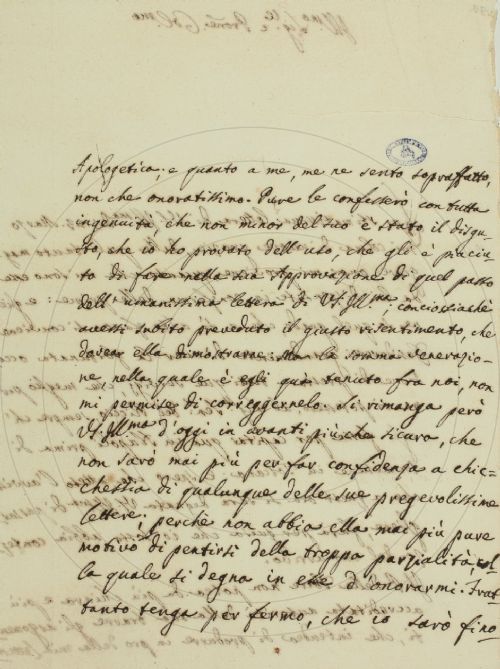 Apologetica; e quanto a me, me ne sento sopraffatto,
non che onoratissimo. Pure le confesserò con tutta
ingenuità, che non minor del suo è stato il disgu=
sto, che io ho provato dell'uso, che gli è piaciu=
to di fare nella sua Approvazione di quel passo
dell'umanissima lettera di VS. Ill.ma, conciossiachè
avessi subito preveduto il giusto risentimento, che
dovea ella dimostrarne: Ma la somma venerazio=
ne, nella quale è egli quà tenuto fra noi, non
mi permise di correggernelo. Si rimanga però
VS. Ill.ma d'oggi in avanti più che sicura, che
non sarò mai più per far confidenza a chic=
chessia di qualunque delle sue pregevolissime
lettere; perchè non abbia ella mai più pure
motivo di pentirsi della troppa parzialità, col
la quale si degna in d'onorarmi. Frat
tanto tenga per fermo, che io sarò fino